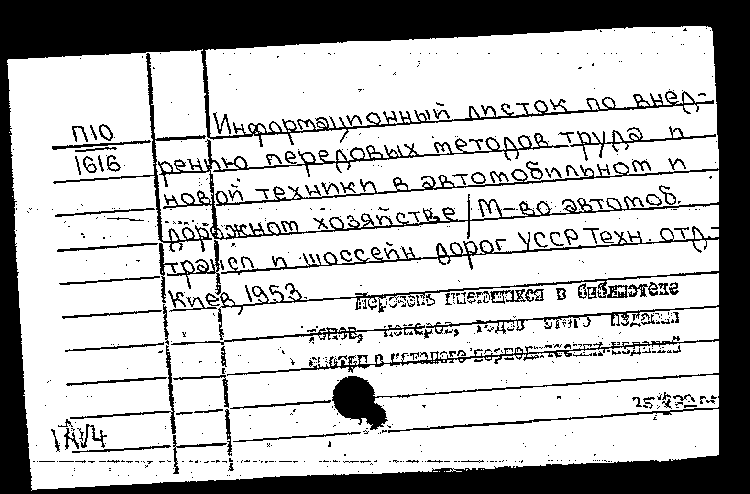 П10
1616
Информационный листок по внед-
рению передовых методов труда и
новой техники в автомобильном и
дорожном хозяйстве / М-во автомоб.
трансп и шоссейн дорог УССР. Техн. отд.-
Киев, 1953.
Перечень имеющихся в библиотеке
томов, номеров, годов этого издания
смотри в каталоге периодических изданий